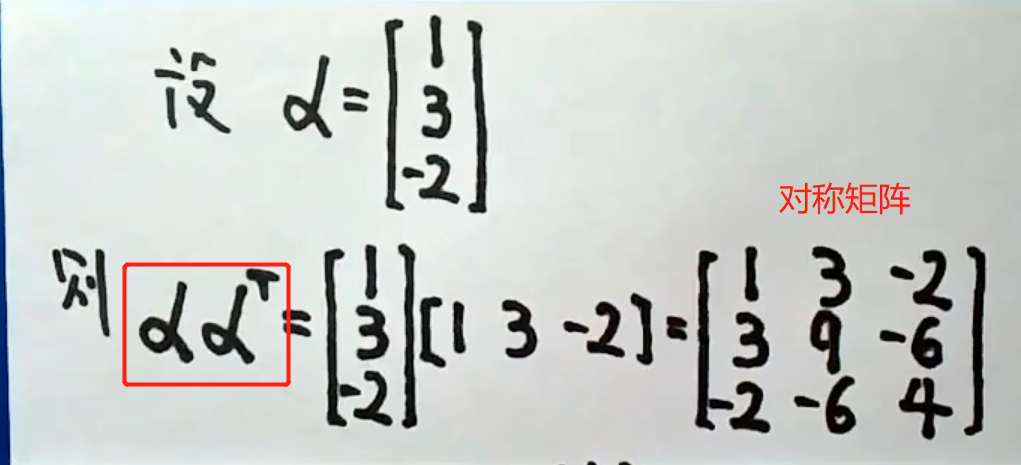 设 α = [1 3 -2]
对称矩阵
则 αα^T = [1 3 -2] [1 3 -2] = [1 3 -2 3 9 -6 -2 -6 4]